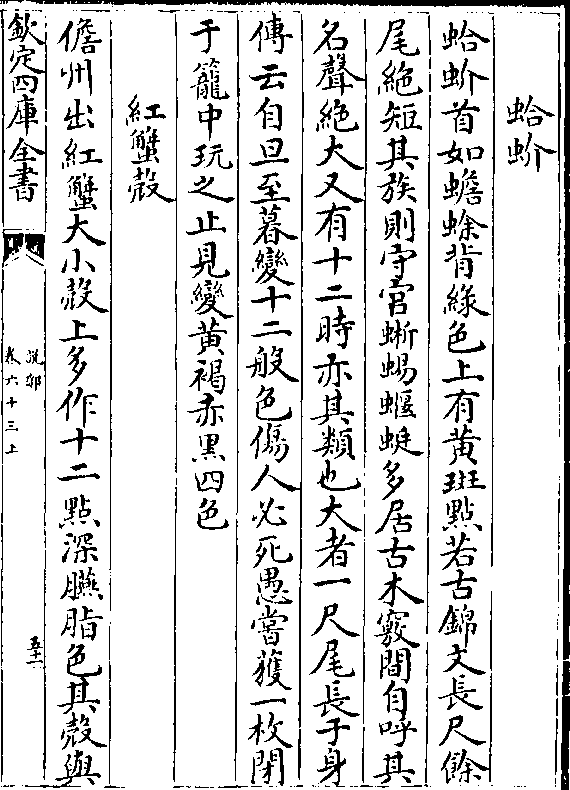 蛤蚧
蛤蚧首如蟾蜍背緑色上有黄斑點若古錦文長尺餘
尾絶短其族則守宫蜥蜴蝘蜓多居古木竅間自呼其
名聲絶大又有十二時亦其類也大者一尺尾長于身
傳云自旦至暮變十二般色傷人必死愚嘗獲一枚閉
于籠中玩之止見變黄褐赤黒四色
紅蟹殻
儋州出紅蟹大小殻上多作十二點深臙脂色其殻與
欽定四庫全書
説郛
卷六十三上
五十二